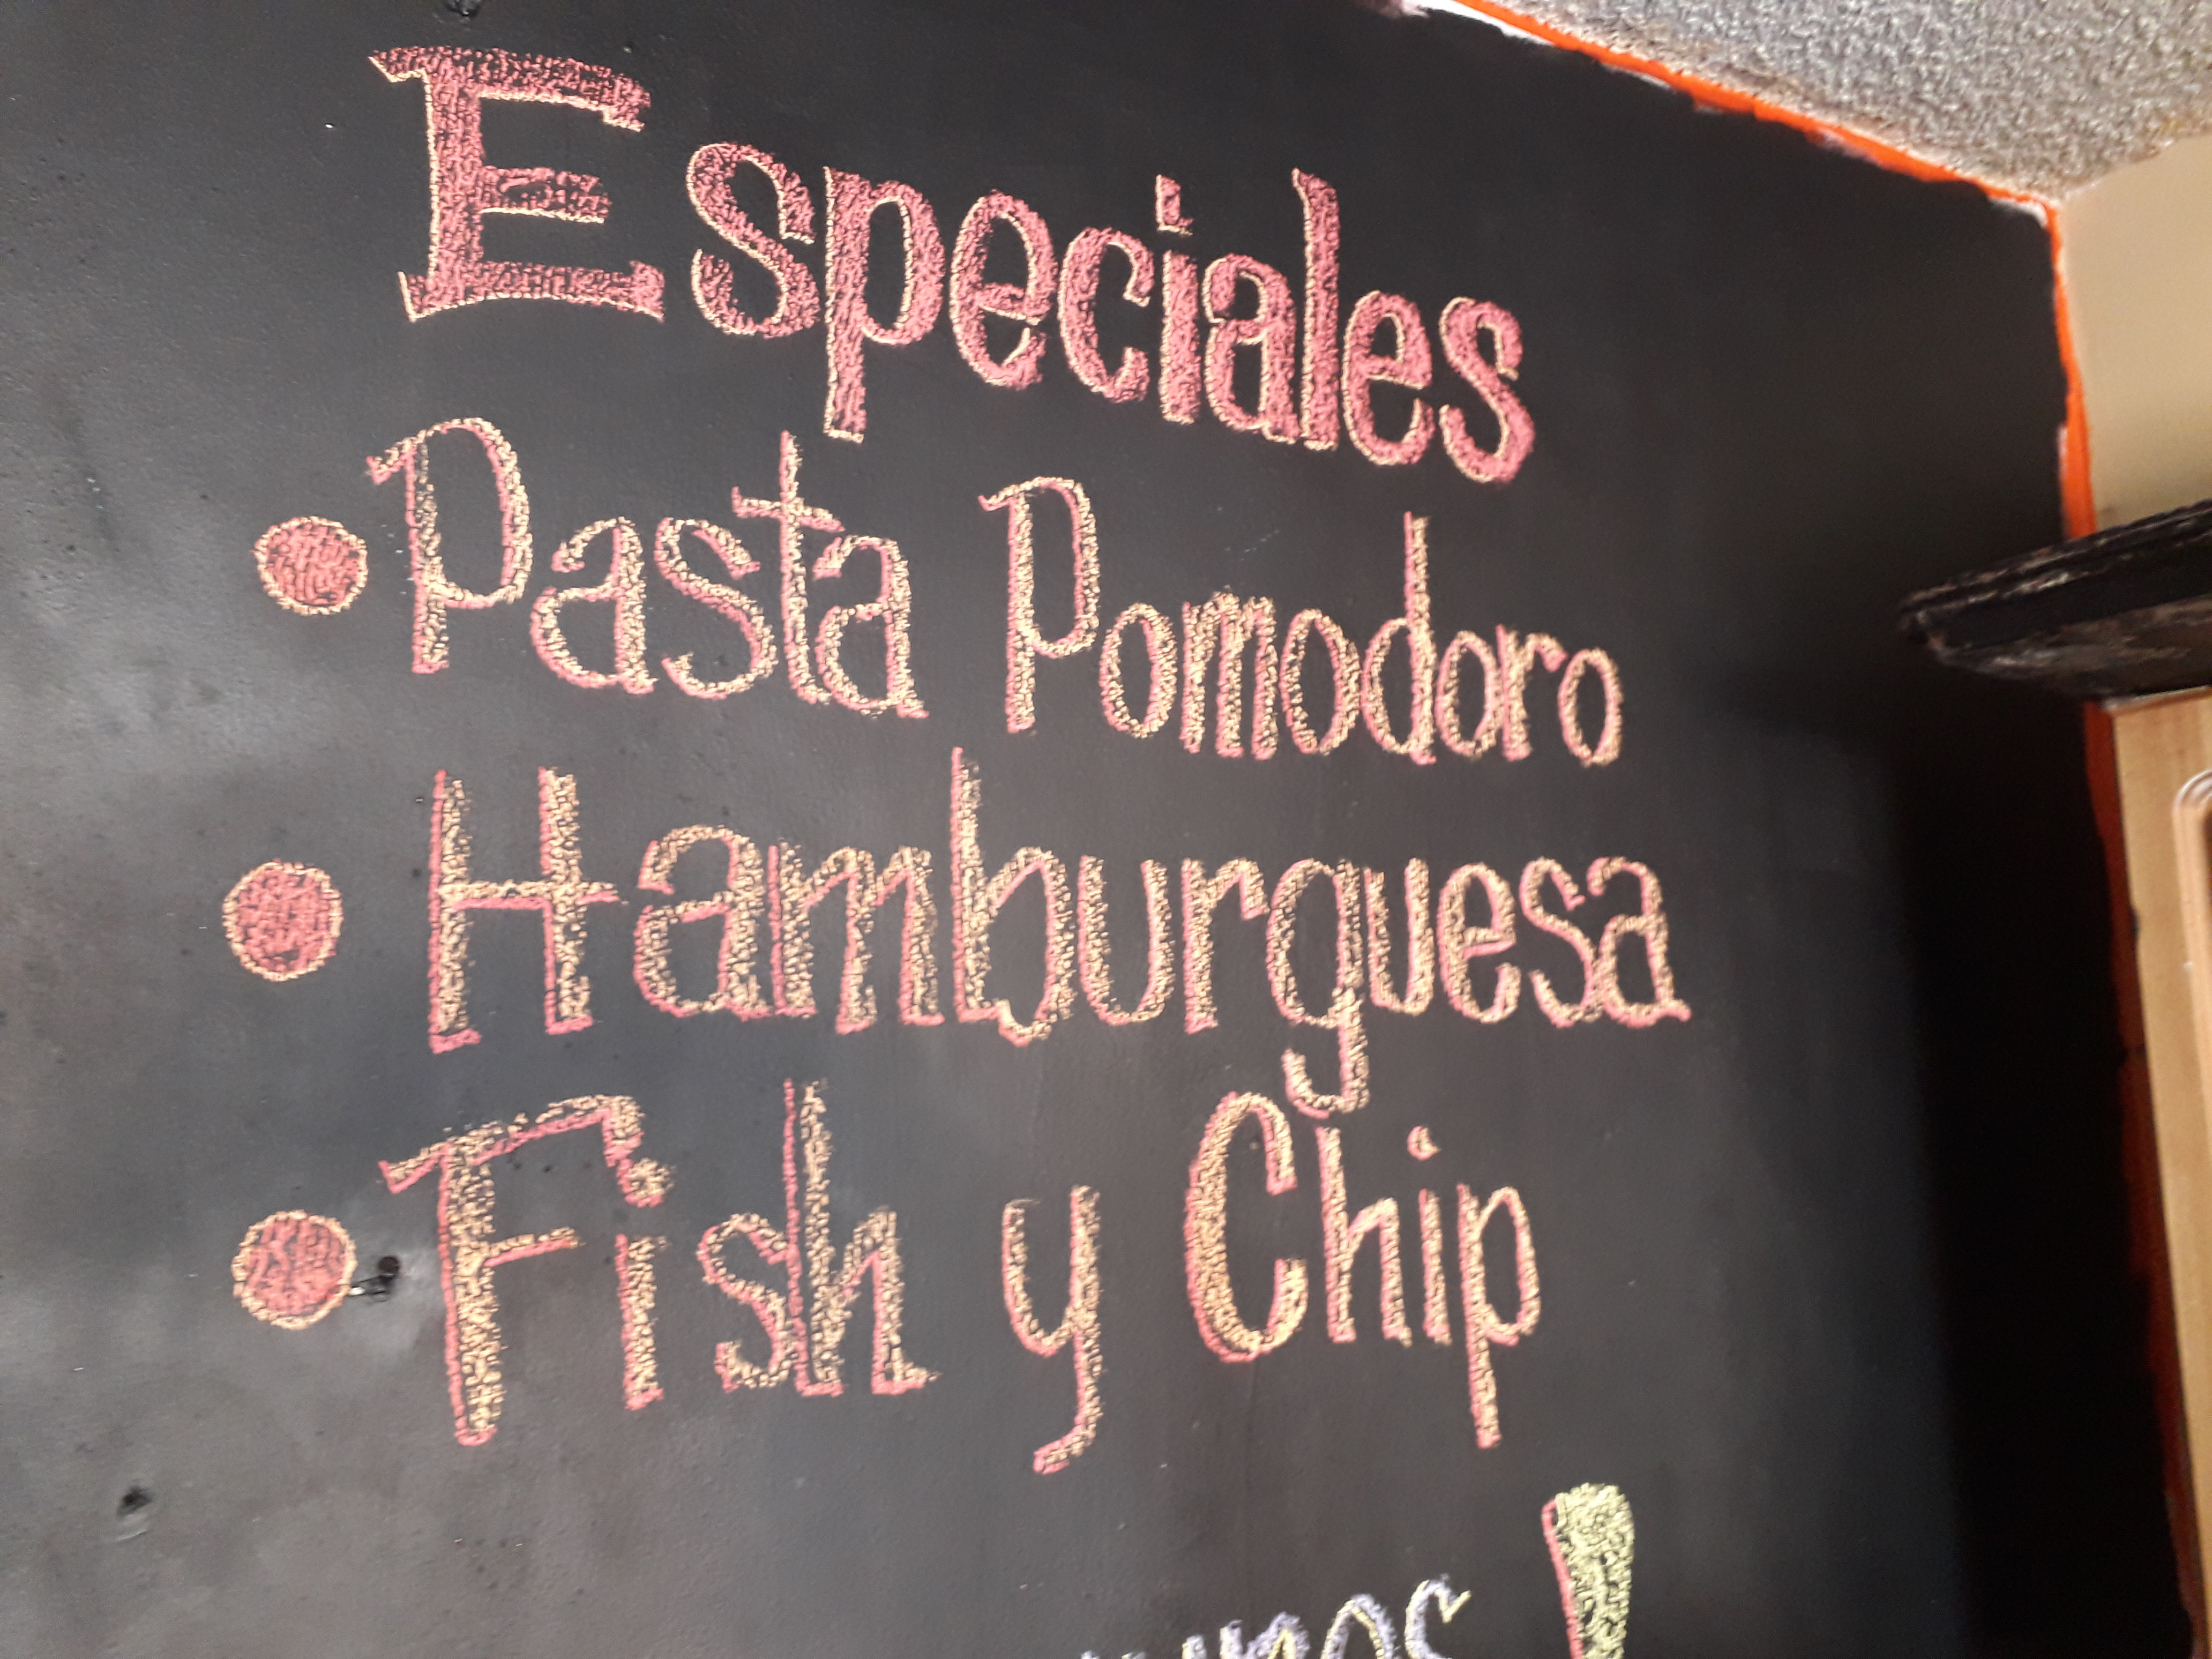 Especiales
• Pasta Pomodoro
• Hamburguesa
• Fish y Chip
!